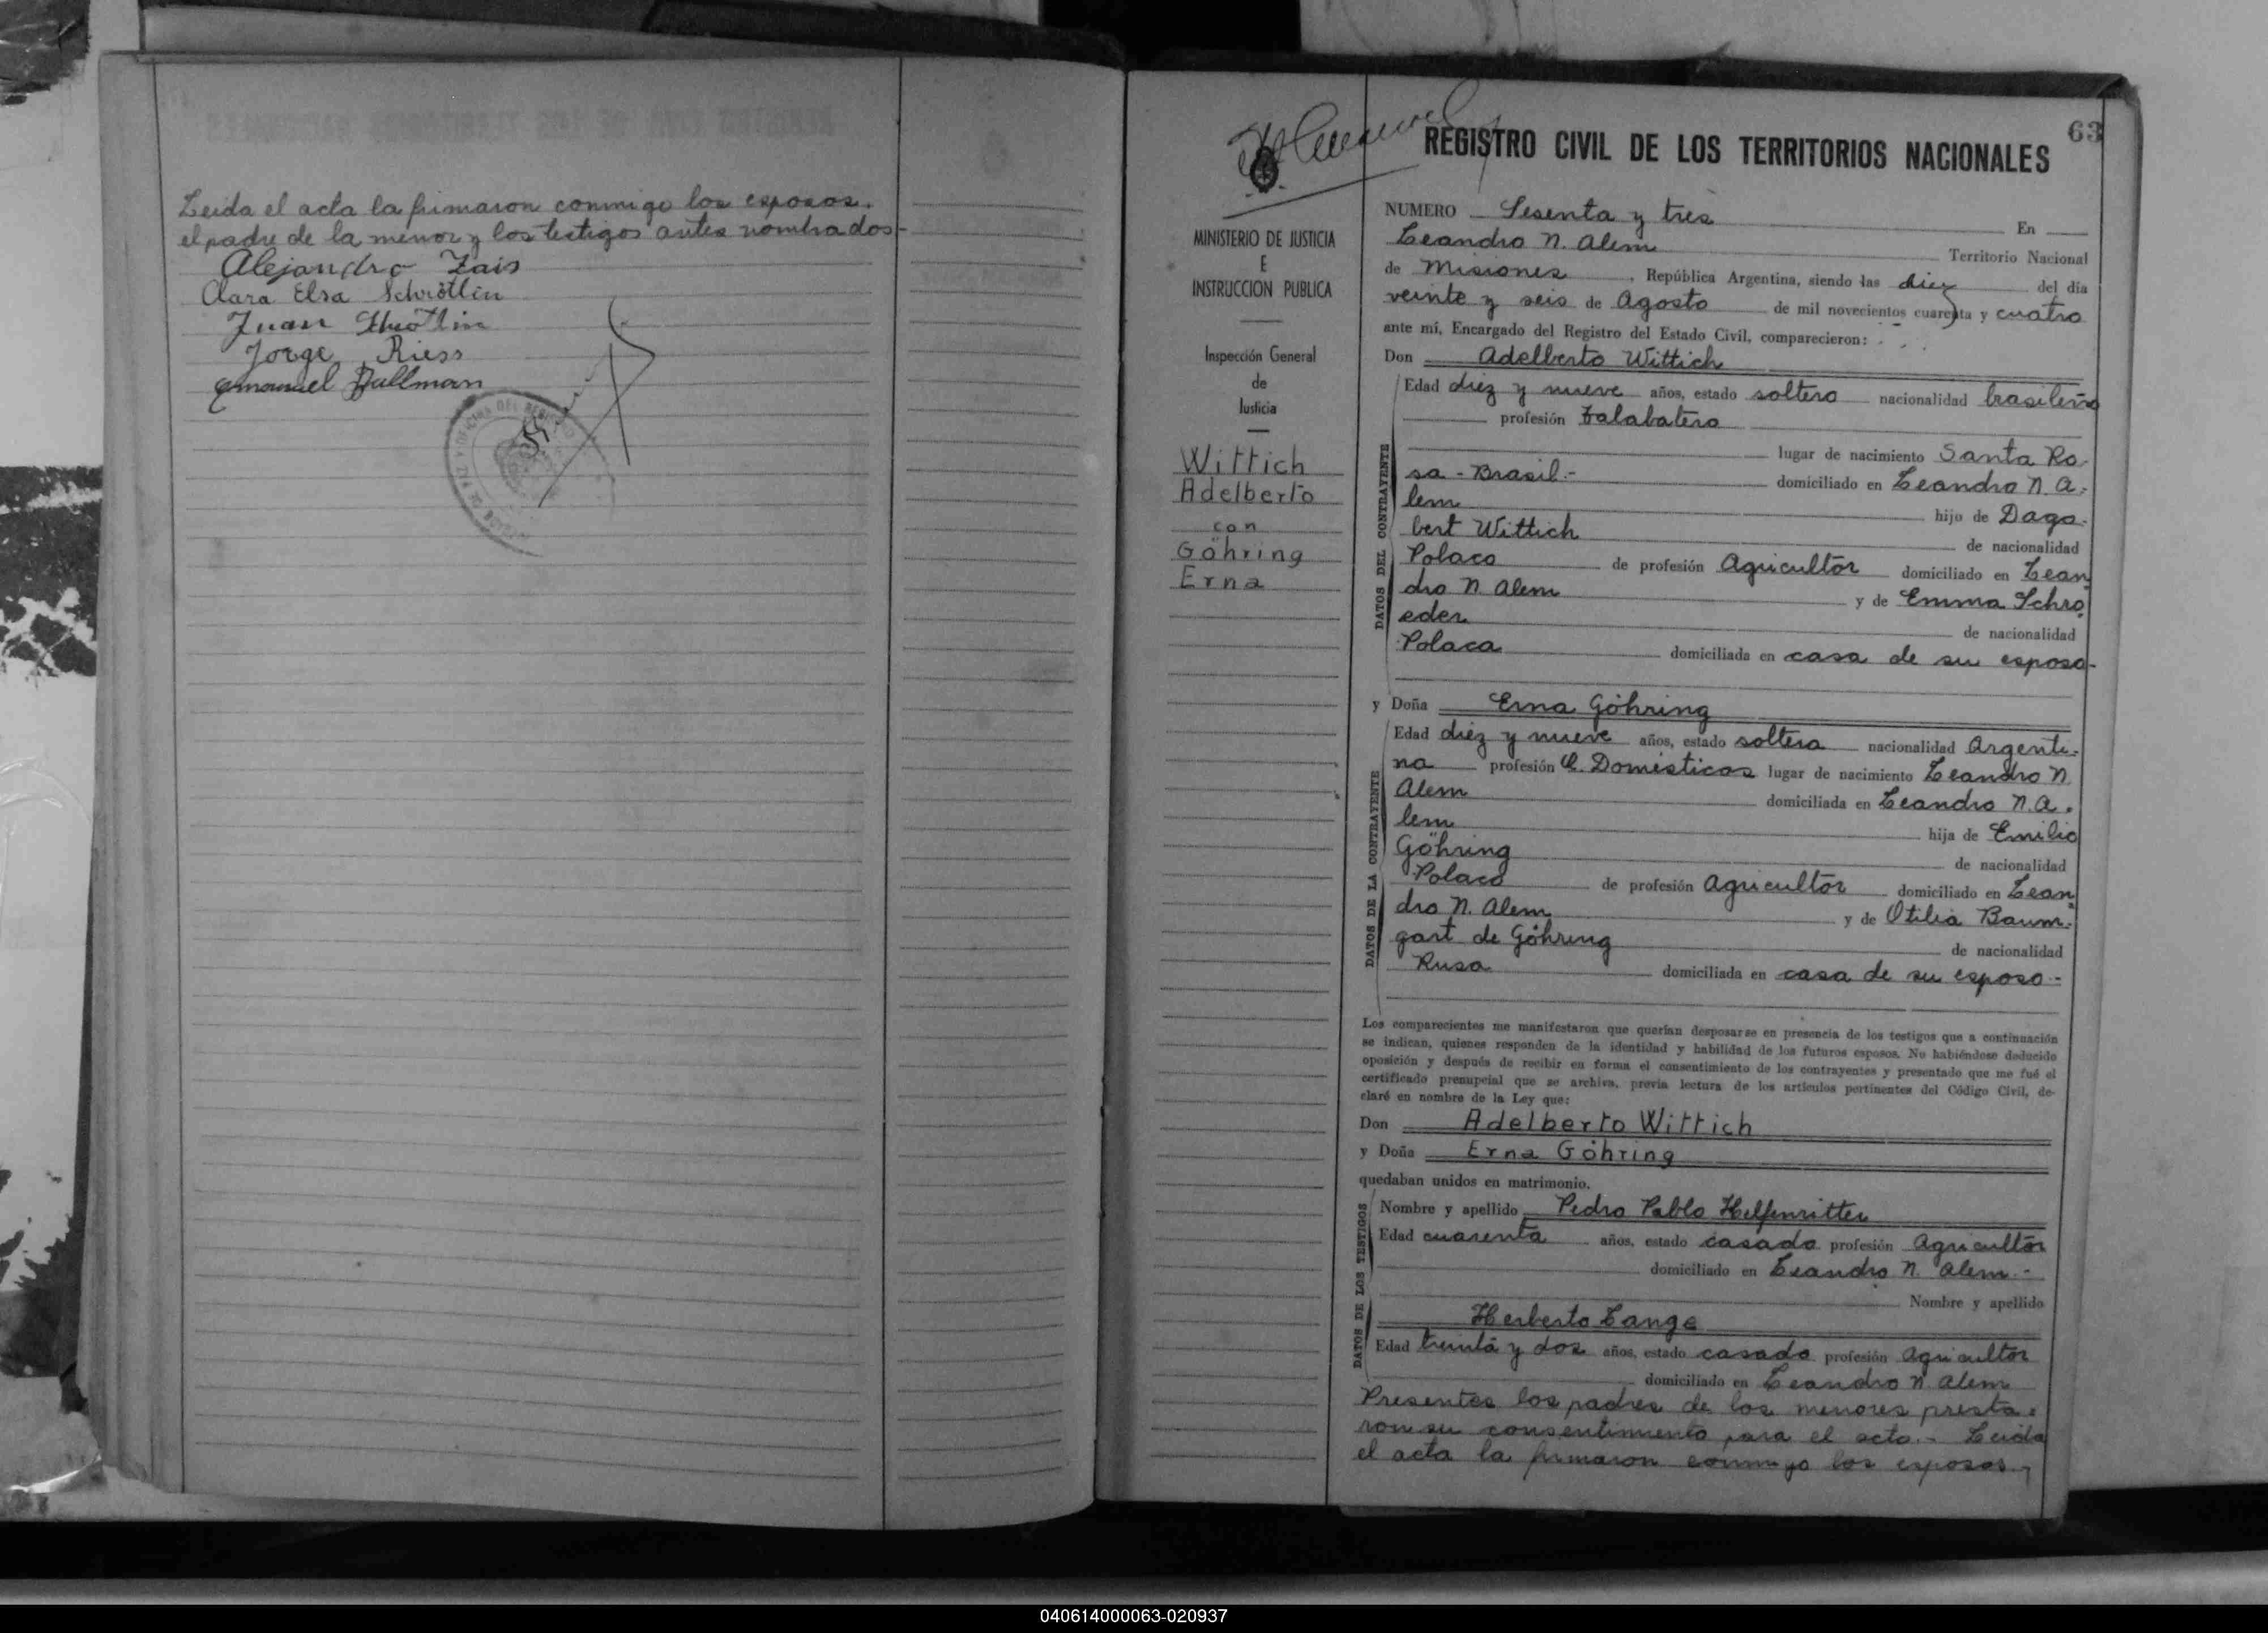 Leida el acta la firmaron conmigo los esposos.
el padre de la menor y los testigos antes nombrados-
Alejandro Zais
Clara Elsa Schrötlin
Juan Schrötlin
Jorge Riess
Emanuel Dallman
63
REGISTRO CIVIL DE LOS TERRITORIOS NACIONALES
MINISTERIO DE JUSTICIA
E
INSTRUCCION PUBLICA
Inspección General
de
Justicia
Wittich
Adelberto
con
Göhring
Erna
NUMERO Sesenta y tres En
Leandro N. Alem Territorio Nacional
de Misiones, República Argentina, siendo las diez del día
veinte y seis de Agosto de mil novecientos cuarenta y cuatro
ante mí, Encargado del Registro del Estado Civil, comparecieron:
Don Adelberto Wittich
DATOS DEL CONTRAYENTE
Edad diez y nueve años, estado soltero nacionalidad brasileño
profesión Talabatero
lugar de nacimiento Santa Ro-
sa - Brasil.- domiciliado en Leandro N. A-
lem hijo de Dago-
bert Wittich de nacionalidad
Polaco de profesión Agricultor domiciliado en Lean
dro N. Alem y de Emma Schro
eder de nacionalidad
Polaca domiciliada en casa de su esposo-
y Doña Erna Göhring
DATOS DE LA CONTRAYENTE
Edad diez y nueve años, estado soltera nacionalidad Argenti-
na profesión Q. Domésticos lugar de nacimiento Leandro N
Alem domiciliada en Leandro N. A.
lem hija de Emilio
Göhring de nacionalidad
Polaco de profesión Agricultor domiciliado en Lean
dro N. Alem y de Otilia Baum-
gart de Göhring de nacionalidad
Rusa domiciliada en casa de su esposo.-
Los comparecientes me manifestaron que querían desposarse en presencia de los testigos que a continuación
se indican, quienes responden de la identidad y habilidad de los futuros esposos. No habiéndose deducido
oposición y después de recibir en forma el consentimiento de los contrayentes y presentado que me fué el
certificado prenupcial que se archiva, previa lectura de los artículos pertinentes del Código Civil, de-
claré en nombre de la Ley que:
Don Adelberto Wittich
y Doña Erna Göhring
quedaban unidos en matrimonio.
DATOS DE LOS TESTIGOS
Nombre y apellido Pedro Pablo Helfenritter
Edad cuarenta años, estado casado profesión Agricultor
domiciliado en Leandro N. Alem.-
Nombre y apellido
Herberto Lange
Edad treinta y dos años, estado casado profesión Agricultor
domiciliado en Leandro N. Alem
Presentes los padres de los menores presta-
ron su consentimiento para el acto.- Leida
el acta la firmaron conmigo los esposos,
040614000063-020937